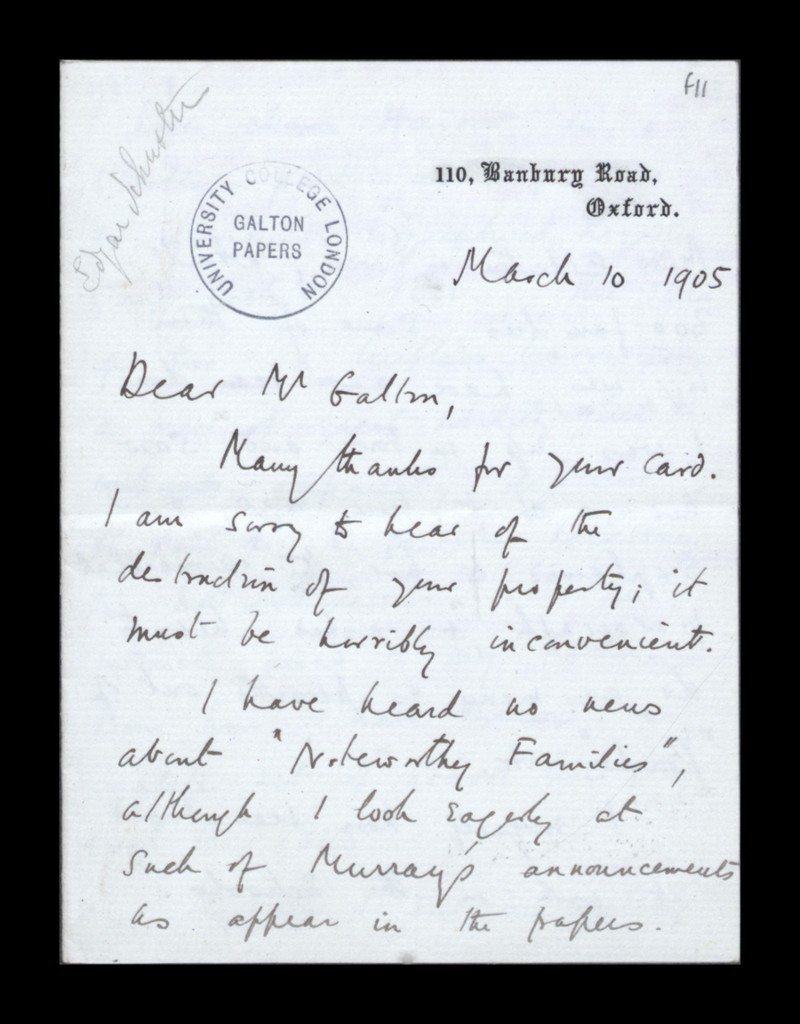 f11
Edgar Schuster
UNIVERSITY COLLEGE LONDON
GALTON
PAPERS
110, Banbury Road,
Oxford.
March 10 1905
Dear Mr Galton,
Many thanks for your card.
I am sorry to hear of the
destruction of your property; it
must be horribly inconvenient.
I have heard no news
about "Noteworthy Families",
although I look eagerly at
such of Murray's announcements
as appear in the papers.